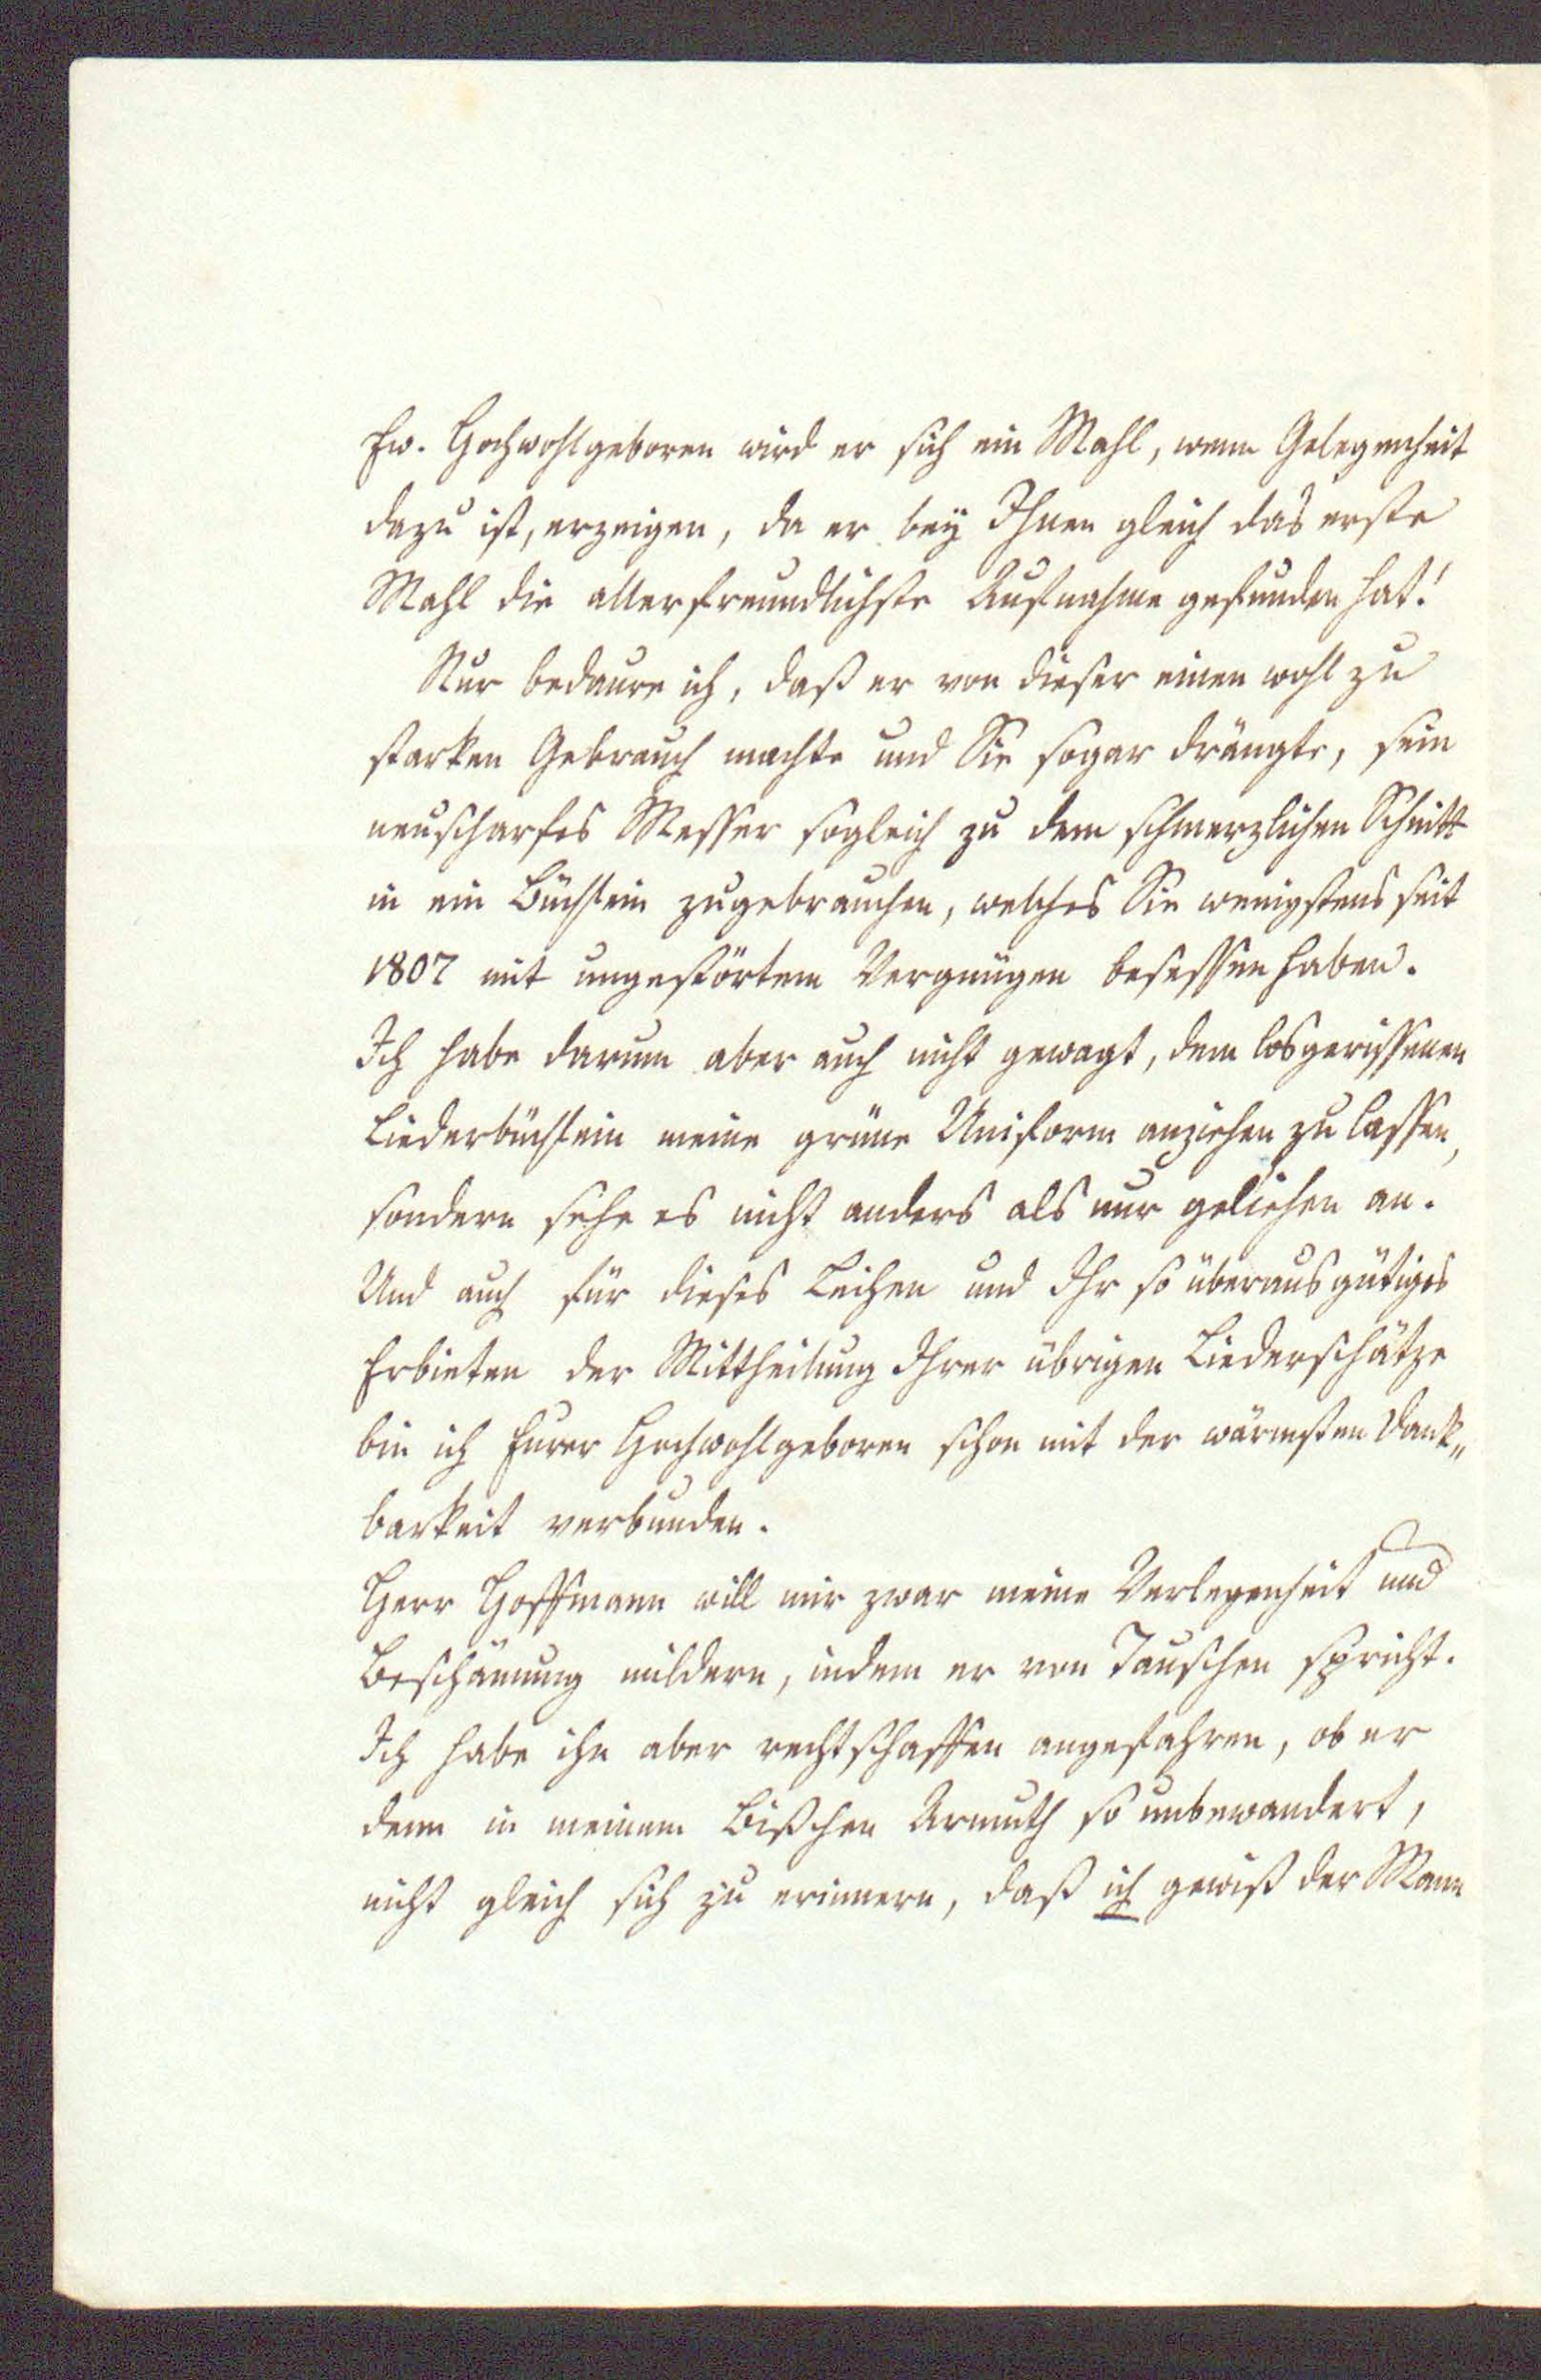 Ew. Hochwohlgeboren wird er sich ein Mahl, wenn Gelegenheit
dazu ist, erzeigen, da er bey Ihnen gleich das erste
Mahl die allerfreundlichste Aufnahme gefunden hat!
Nur bedaure ich, daß er von dieser einen wohl zu
starken Gebrauch machte und Sie sogar drängte, sein
neuscharfes Messer sogleich zu dem schmerzlichen Schnitt
in ein Büchlein zugebrauchen, welches Sie wenigstens seit
1807 mit ungestörtem Vergnügen besessen haben.
Ich habe darum aber auch nicht gewagt, dem losgerissenen
Liederbüchlein meine grüne Uniform anziehen zu lassen,
sondern sehe es nicht anders als nur geliehen an.
Und auch für dieses Leihen und Ihr so überaus gütiges
Erbieten der Mittheilung Ihrer übrigen Liederschätze
bin ich Eurer Hochwohlgeboren schon mit der wärmsten Dank„
barkeit verbunden.
Herr Hoffmann will mir zwar meine Verlegenheit und
Beschämung mildern, indem er von Tauschen spricht.
Ich habe ihn aber rechtschaffen angefahren, ob er
denn in meinem Bißchen Armuth so unbewandert,
nicht gleich sich zu erinnern, daß ich gewiß der Mann